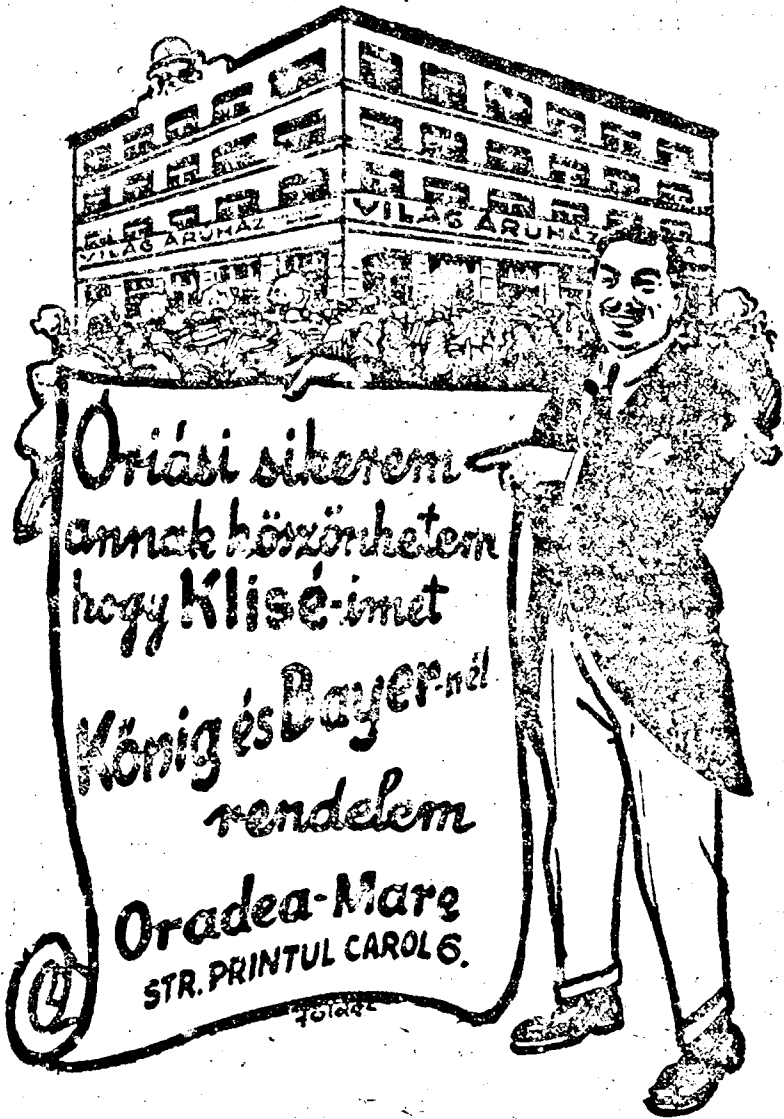 VILÁG ÁRUHÁZ
VILÁG ÁRUHÁZ
Óriási sikerem
annak köszönhetem
hogy Klisé-imet
Kőnig és Bayer-nél
rendelem
Oradea-Mare
STR. PRINTUL CAROL 6.